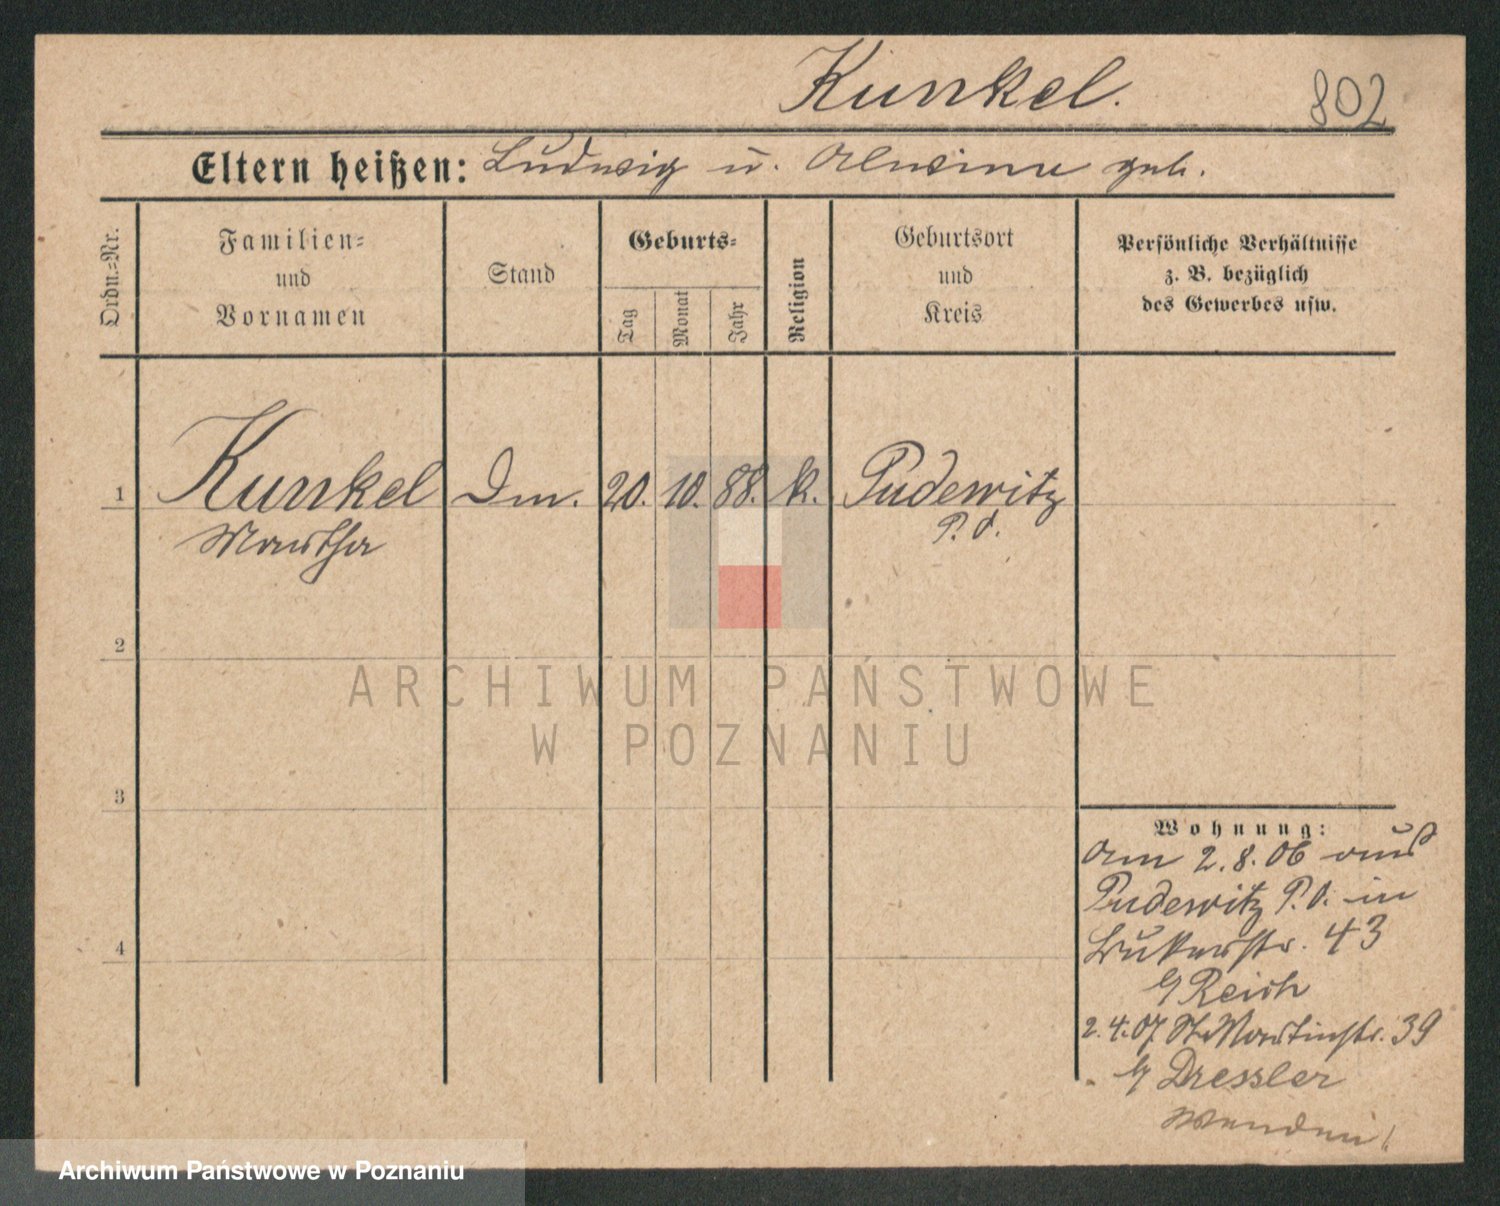 Kunkel.
802
Eltern heißen: Ludwig u. Alwine geb.
Ordn.-Nr.
Familien-
und
Vornamen
Stand
Geburts-
Tag
Monat
Jahr
Religion
Geburtsort
und
Kreis
Persönliche Verhältnisse
z. B. bezüglich
des Gewerbes usw.
1 Kunkel 20. 10. 88. k. Pudewitz
Martha P. O.
2
3
4
Wohnung:
am 2.8.06 aus
Pudewitz P.O. in
43
b/ Reich
2.4.07 St. Martinstr. 39
b/ Dressler
Wenden!
ARCHIWUM PAŃSTWOWE
W POZNANIU
Archiwum Państwowe w Poznaniu